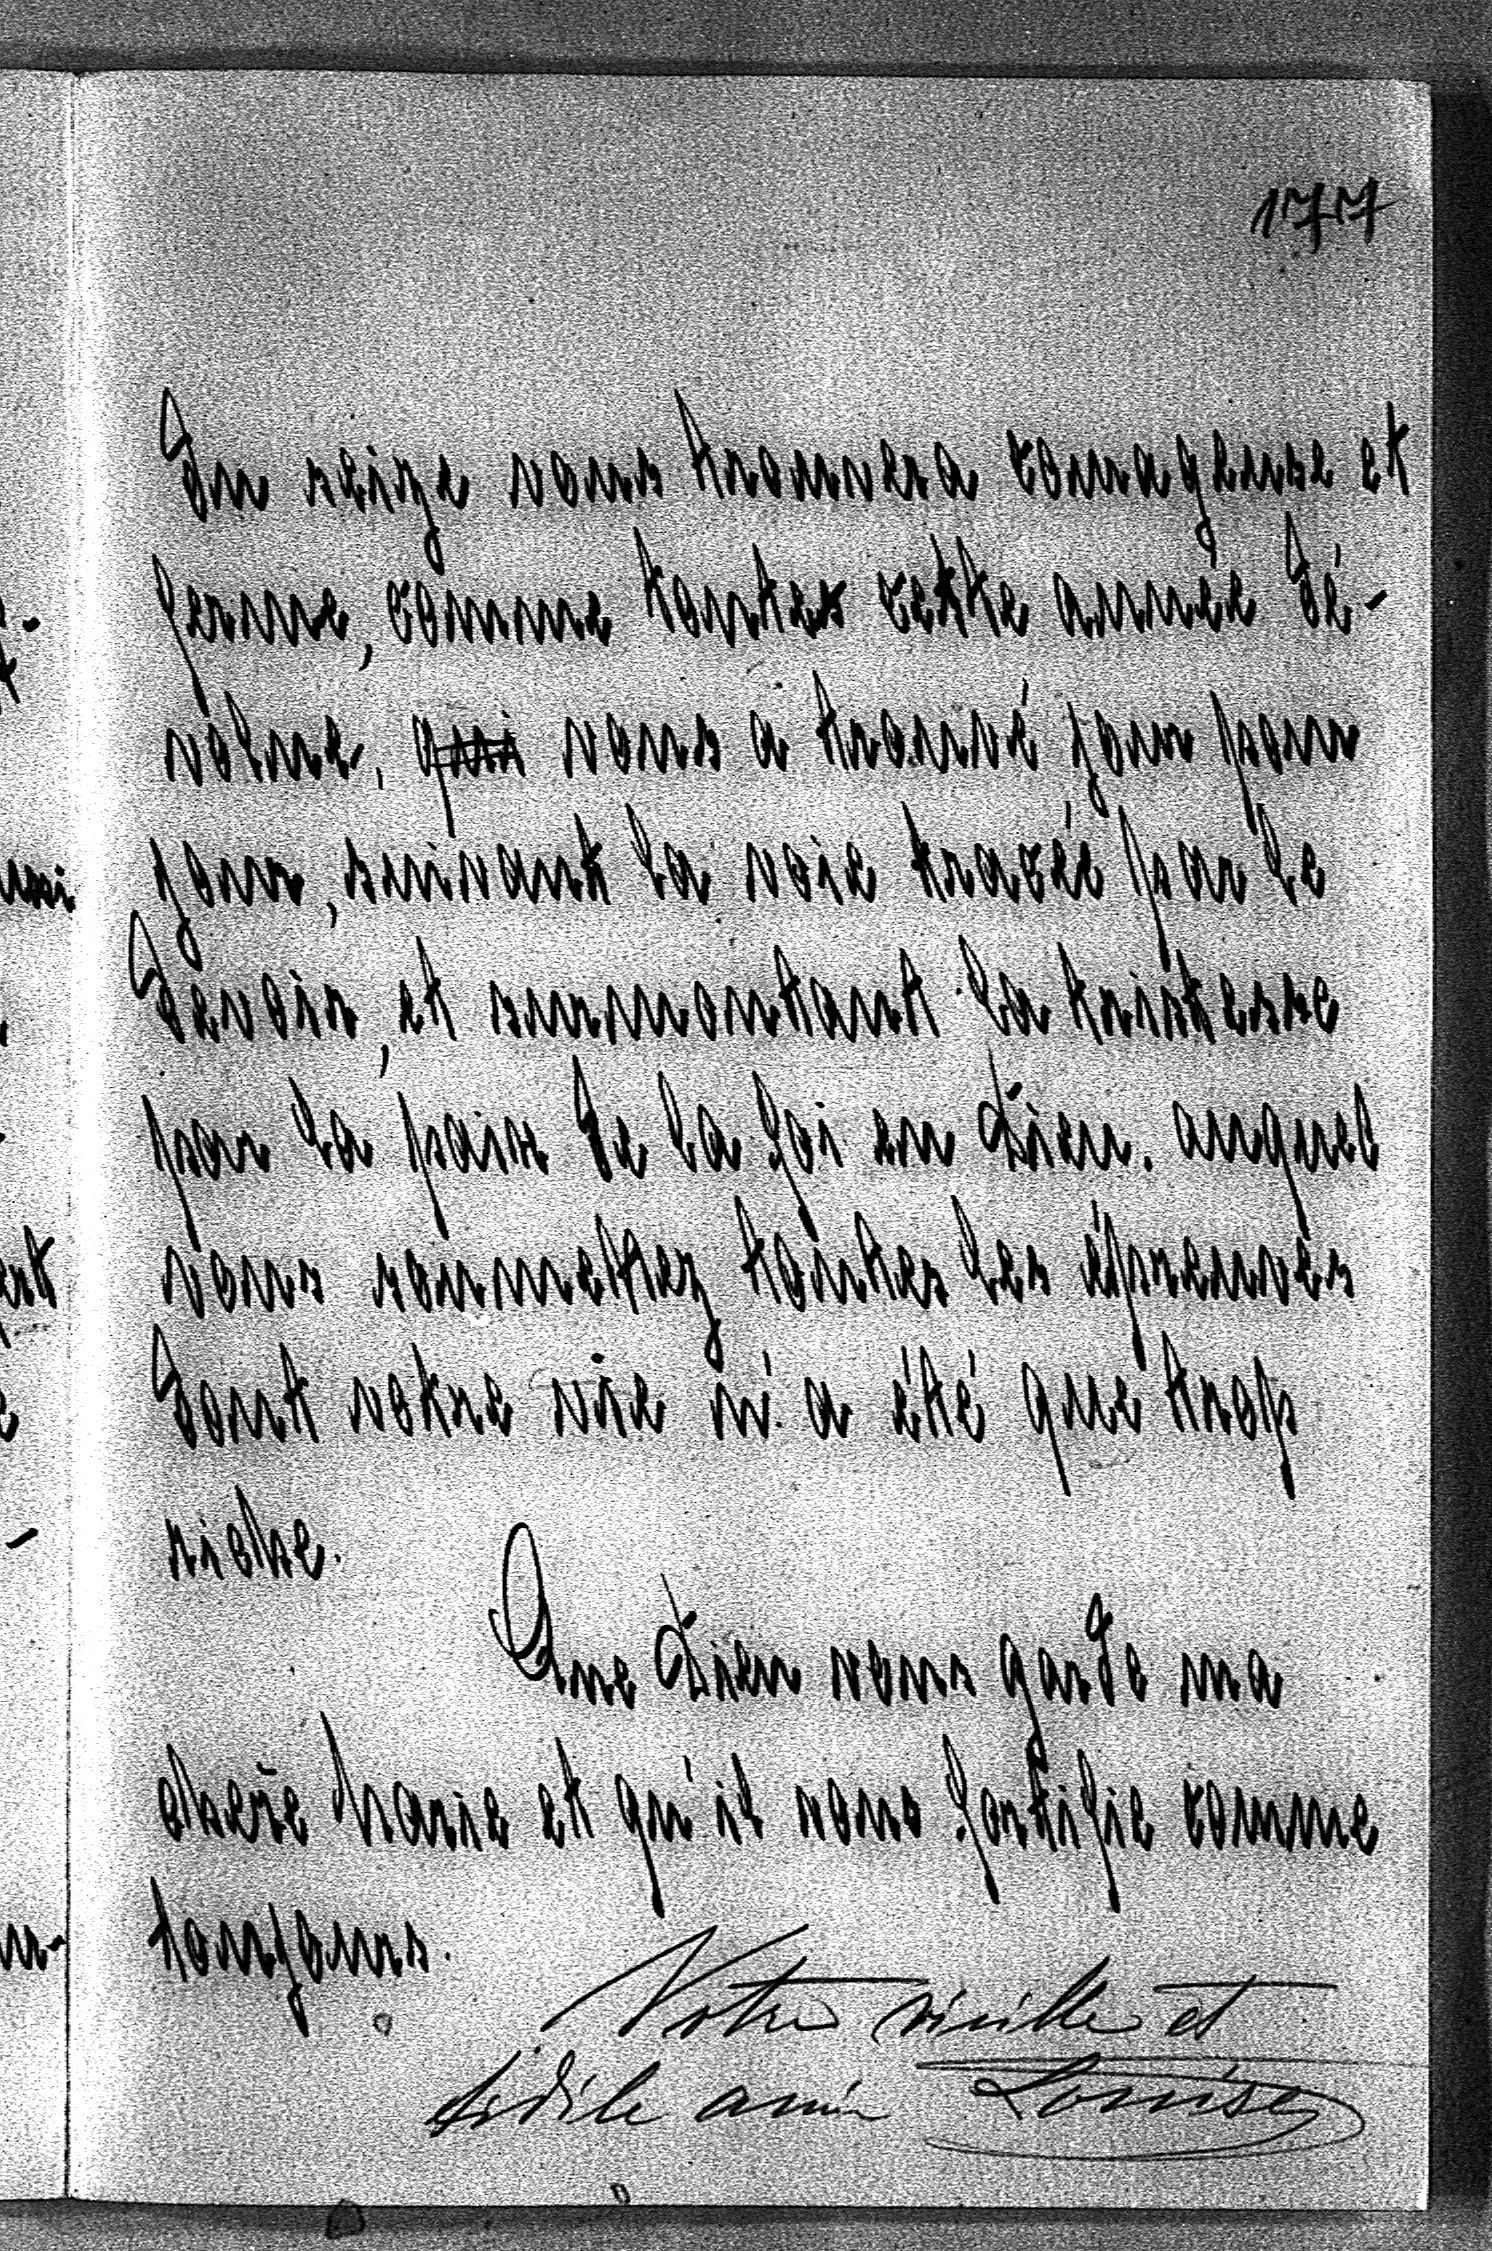 177
Du reige vous trouvera courageuse et
ferme, comme toutes cette année dé-
volue, qui vous a trouvé jour pour
jour, suivant la voie tracée par le
Devoir, et surmontant la tristesse
par la paix de la foi en Dieu. auquel
vous soummettez toutes les épreuves
dont votre vie n'a été que trop
riche.
Que Dieu vous garde ma
chere Marie et qu'il vous fortifie comme
toujours.
Votre vieille et
fidèle amie Louise